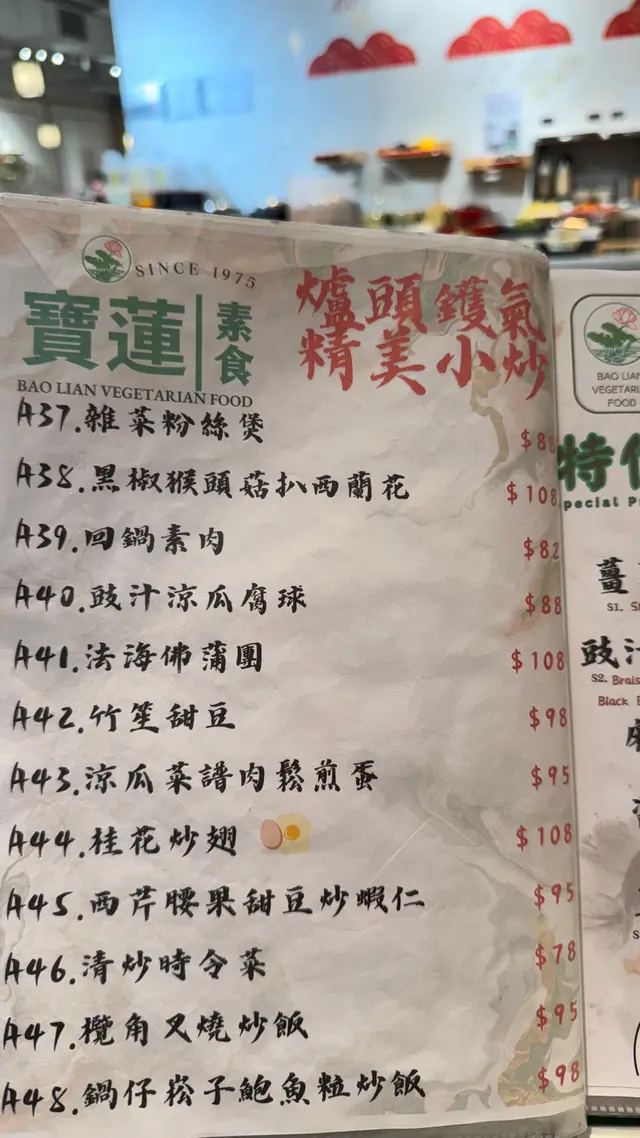 SINCE 1975
寶蓮 素食
BAO LIAN VEGETARIAN FOOD
爐頭鑊氣
精美小炒
A37.雜菜粉絲煲 $88
A38.黑椒猴頭菇扒西蘭花 $108
A39.回鍋素肉 $82
A40.豉汁涼瓜腐球 $88
A41.法海佛蒲團 $108
A42.竹笙甜豆 $98
A43.涼瓜菜譜肉鬆煎蛋 $95
A44.桂花炒翅 $108
A45.西芹腰果甜豆炒蝦仁 $95
A46.清炒時令菜 $78
A47.欖角叉燒炒飯 $95
A48.鍋仔崧子鮑魚粒炒飯 $98
BAO LIAN
FOOD
特
薑
S1.
豉汁
S2.
Black